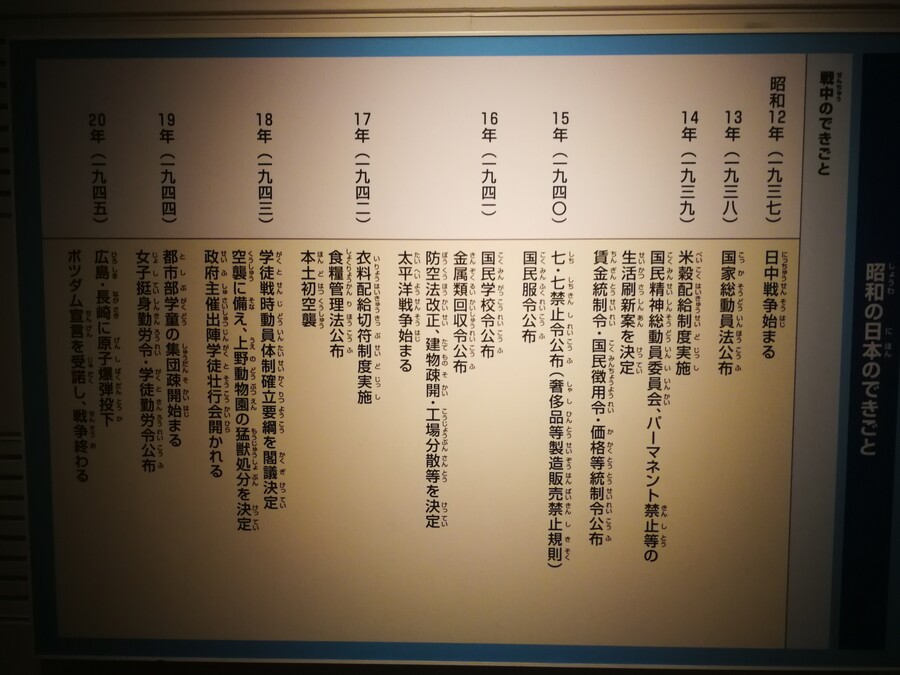 昭和の日本のできごと
戦中のできごと
昭和12年（一九三七）
日中戦争始まる
13年（一九三八）
国家総動員法公布
14年（一九三九）
米穀配給制度実施
国民精神総動員委員会、パーマネント禁止等の
生活刷新案を決定
賃金統制令・国民徴用令・価格等統制令公布
15年（一九四〇）
七・七禁止令公布（奢侈品等製造販売禁止規則）
国民服令公布
16年（一九四一）
国民学校令公布
金属類回収令公布
防空法改正、建物疎開・工場分散等を決定
太平洋戦争始まる
17年（一九四二）
衣料配給切符制度実施
食糧管理法公布
本土初空襲
18年（一九四三）
学徒戦時動員体制確立要綱を閣議決定
空襲に備え、上野動物園の猛獣処分を決定
政府主催出陣学徒壮行会開かれる
19年（一九四四）
都市部学童の集団疎開始まる
女子挺身勤労令・学徒勤労令公布
20年（一九四五）
広島・長崎に原子爆弾投下
ポツダム宣言を受諾し、戦争終わる